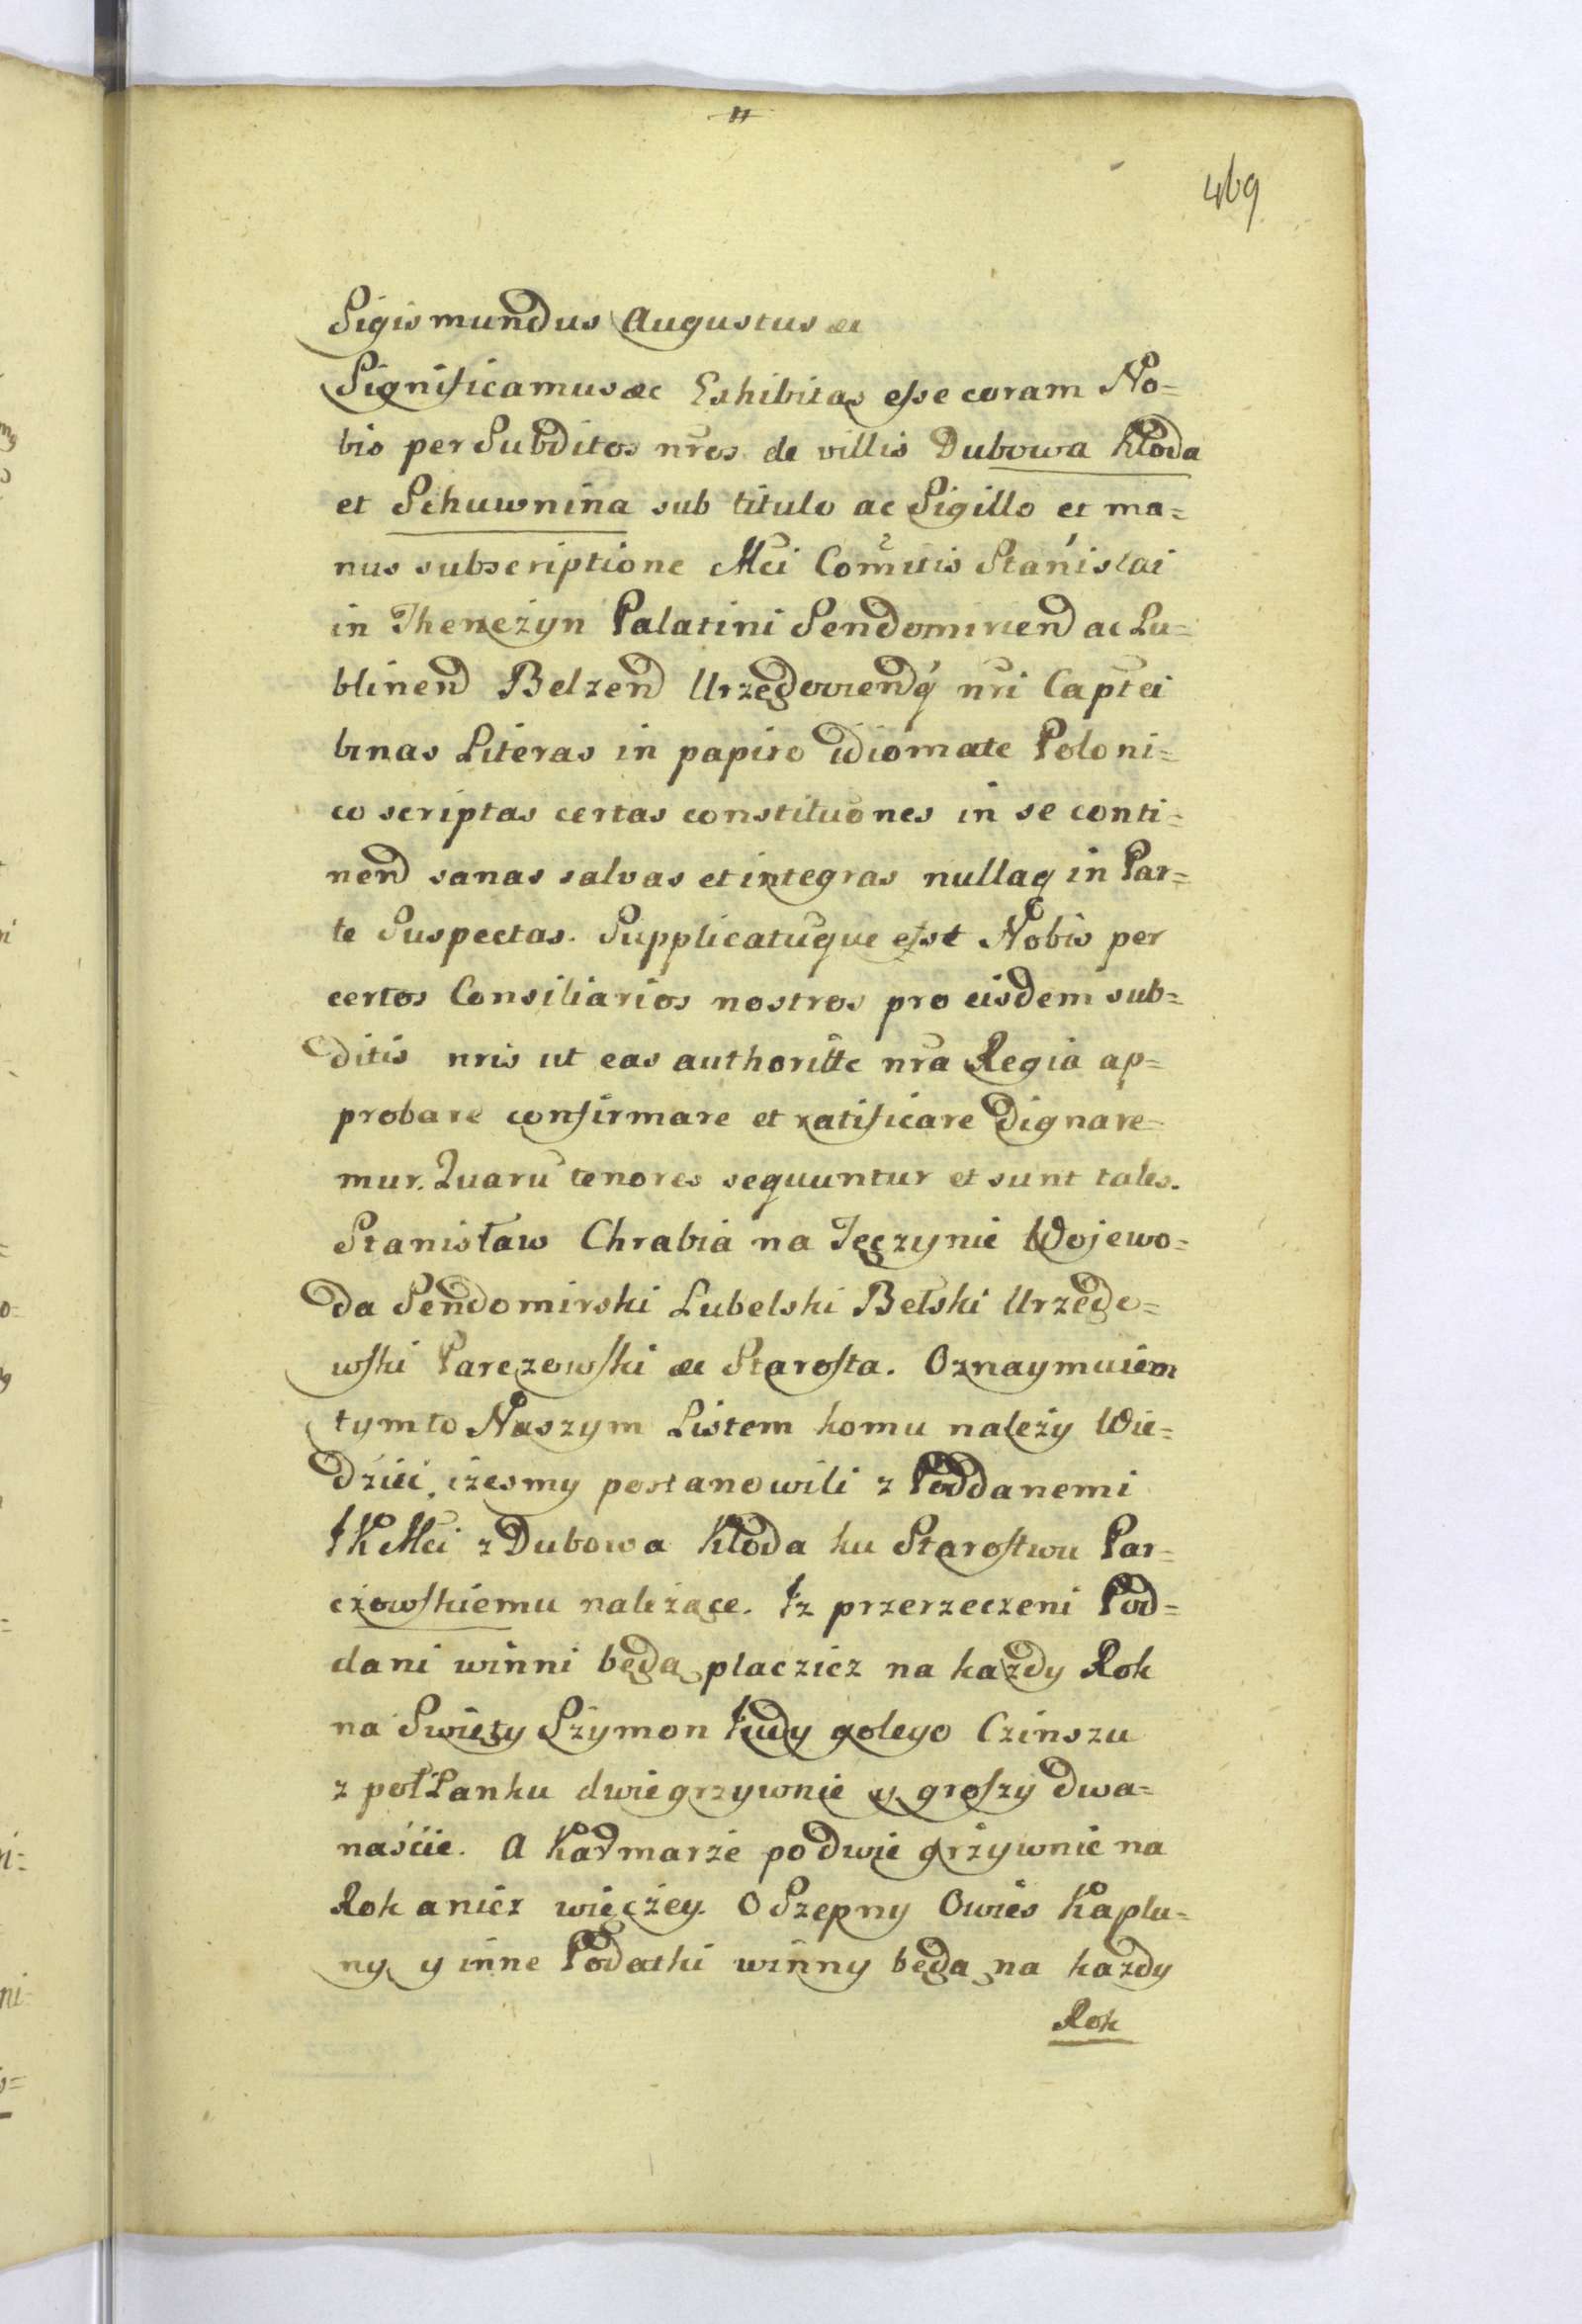 469
Sigismundus Augustus &c
Significamus &c Exhibitas esse coram No=
bis per Subditos nr̃os de villis Dubowa Kłoda
et Schuwnina sub titulo ac Sigillo et ma=
nus subscriptione Mci Com̃itis Stanislai
in Thenezyn Palatini Sendomirien̄ ac Lu=
blinen̄ Belzen̄ Urzędowien̄q́ nr̃i Captei
binas Literas in papiro idiomate Poloni=
co scriptas certas constituones in se conti=
nen̄ sanas salvas et integras nullaq in Par=
te Suspectas. Supplicatuque esst Nobis per
certos Consiliarios nostros pro eisdem sub=
ditis nris ut eas authoritte nr̃a Regia ap=
probare confirmare et ratificare dignare=
mur. Quarũ tenores sequuntur et sunt tales.
Stanisław Chrabia na Tęczynie Wojewo=
da Sendomirski Lubelski Bełski Urzędo=
wski Parczowski &c Starosta. Oznaymuiem
tymto Naszym Listem komu należy Wie=
dzieć, iżesmy postanowili z Poddanemi
JK Mci z Dubowa Kłoda ku Starostwu Par=
czowskiemu należące. Iz przerzeczeni Pod=
dani winni będą placzicz na każdy Rok
na Swięty Szymon Judy golego Czinszu
z poł Łanku dwie grzywnie y groszy dwa=
naście. A Karmarze po dwie grzywnie na
Rok a nicz więczey. O Szepny Owies Kaplu=
ny y inne Podatki winny będą na każdy
Rok